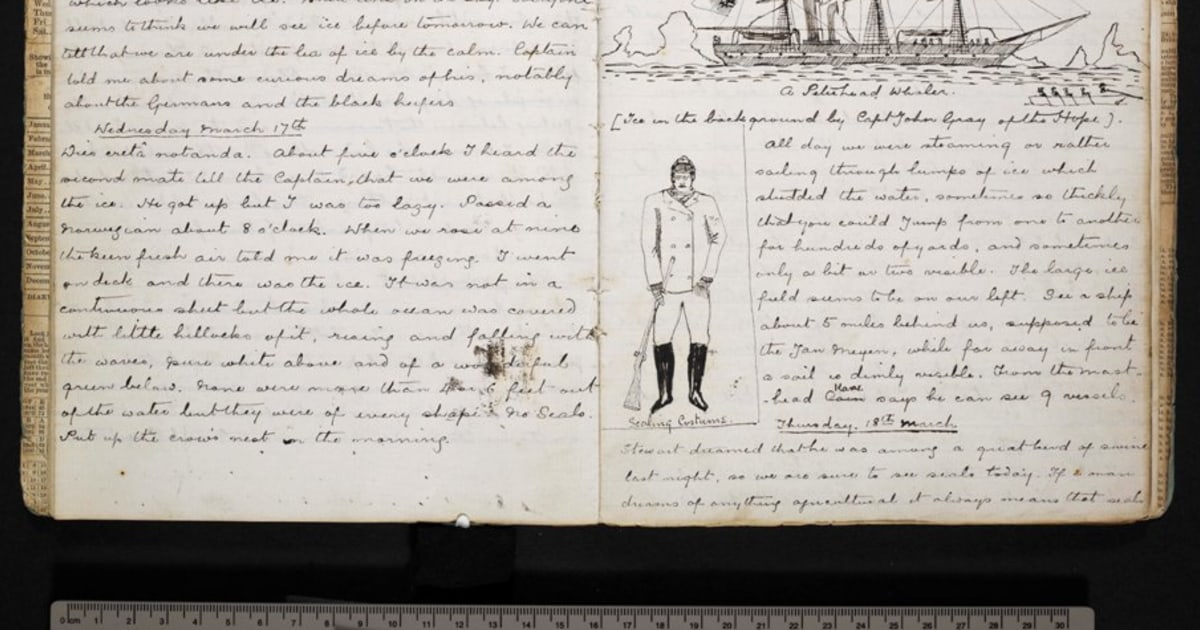 which looks like it.
seems to think we will see ice before tomorrow. We can
tell that we are under the lea of ice by the calm. Captain
told me about some curious dreams of his, notably
about the Germans and the black heifers
Wednesday March 17th
Dies cretâ notanda. About five o'clock I heard the
second mate tell the Captain, that we were among
the ice. He got up but I was too lazy. Passed a
Norwegian about 8 o'clock. When we rose at nine
the keen fresh air told me it was freezing. I went
on deck and there was the ice. It was not in a
continuous sheet but the whole ocean was covered
with little hillocks of it, rising and falling with
the waves, pure white above and of a wonderful
green below. None were more than 4 or 6 feet out
of the water but they were of every shape. No Seals.
Put up the crow's nest in the morning
A Peterhead Whaler.
[Ice in the background by Capt John Gray of the Hope].
All day we were steaming or rather
sailing through lumps of ice which
studded the water, sometimes so thickly
that you could Jump from one to another
for hundreds of yards, and sometimes
only a bit or two visible. The large ice
field seems to be on our left. See a ship
about 5 miles behind us, supposed to be
the Jan Meyen, while far away in front
a sail is dimly visible. From the mast-
-head Colin says he can see 9 vessels.
Sealing Costume.
Thursday. 18th March
Stewart dreamed that he was among a great herd of swine
last night, so we are sure to see seals today. If a man
dreams of anything agricultural it always means that seals
0 cm 1 2 3 4 5 6 7 8 9 10 11 12 13 14 15 16 17 18 19 20 21 22 23 24 25 26 27 28 29 30